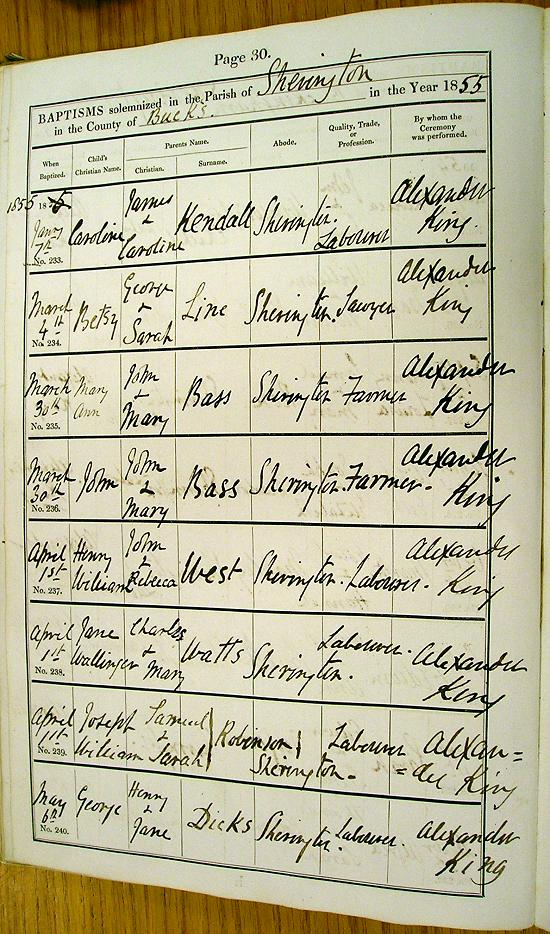 Page 30.
BAPTISMS solemnized in the Parish of Sherington
in the County of Bucks. in the Year 1855
When Baptized. Child's Christian Name. Parents Name. Christian. Surname. Abode. Quality, Trade, or Profession. By whom the Ceremony was performed.
1855 Jany 7th No. 233. Caroline James & Caroline Kendall Sherington. Labourer Alexander King.
March 4th No. 234. Betsy George & Sarah Line Sherington. Sawyer Alexander King
March 30th No. 235. Mary Ann John & Mary Bass Sherington Farmer Alexander King
March 30th No. 236. John John & Mary Bass Sherington. Farmer. Alexander King
April 1st No. 237. Henry William John & Rebecca West Sherington. Labourer. Alexander King
April 1st No. 238. Jane Wallinger Charles & Mary Watts Sherington. Labourer. Alexander King
April 1st No. 239. Joseph William Samuel & Sarah Robinson Sherington Labourer Alexan= =der King
May 6th No. 240. George Henry & Jane Dicks Sherington. Labourer. Alexander King